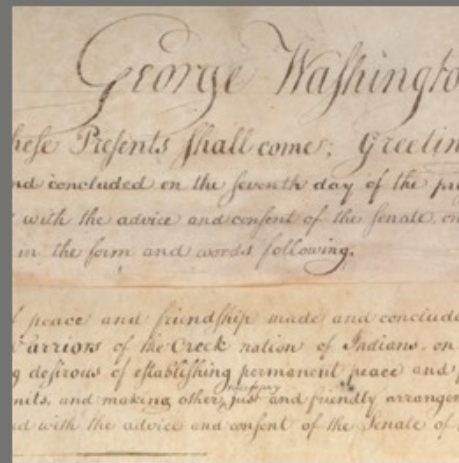 George Washingto
hese Presents shall come; Greetin
nd concluded on the seventh day of the pr
with the advice and consent of the Senate, on
in the form and words following.
peace and friendship made and conclude
arriors of the Creek nation of Indians, on
g desirous of establishing permanent peace and
mits, and making other necessary just and friendly arrangem
ed with the advice and consent of the Senate of